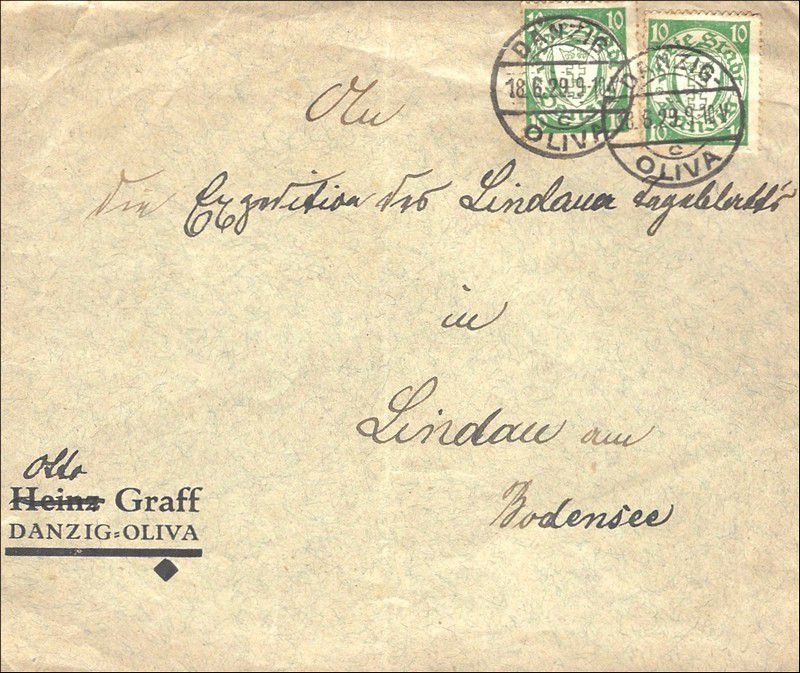 10 10
DANZIG-
18.6.29.9-10V.
c
OLIVA
DANZIG-
8.6.29.9-10V.
c
OLIVA
An
die Expedition des Lindauer Tageblatt's
in
Lindau am
Bodensee
Otto
Heinz Graff
DANZIG=OLIVA